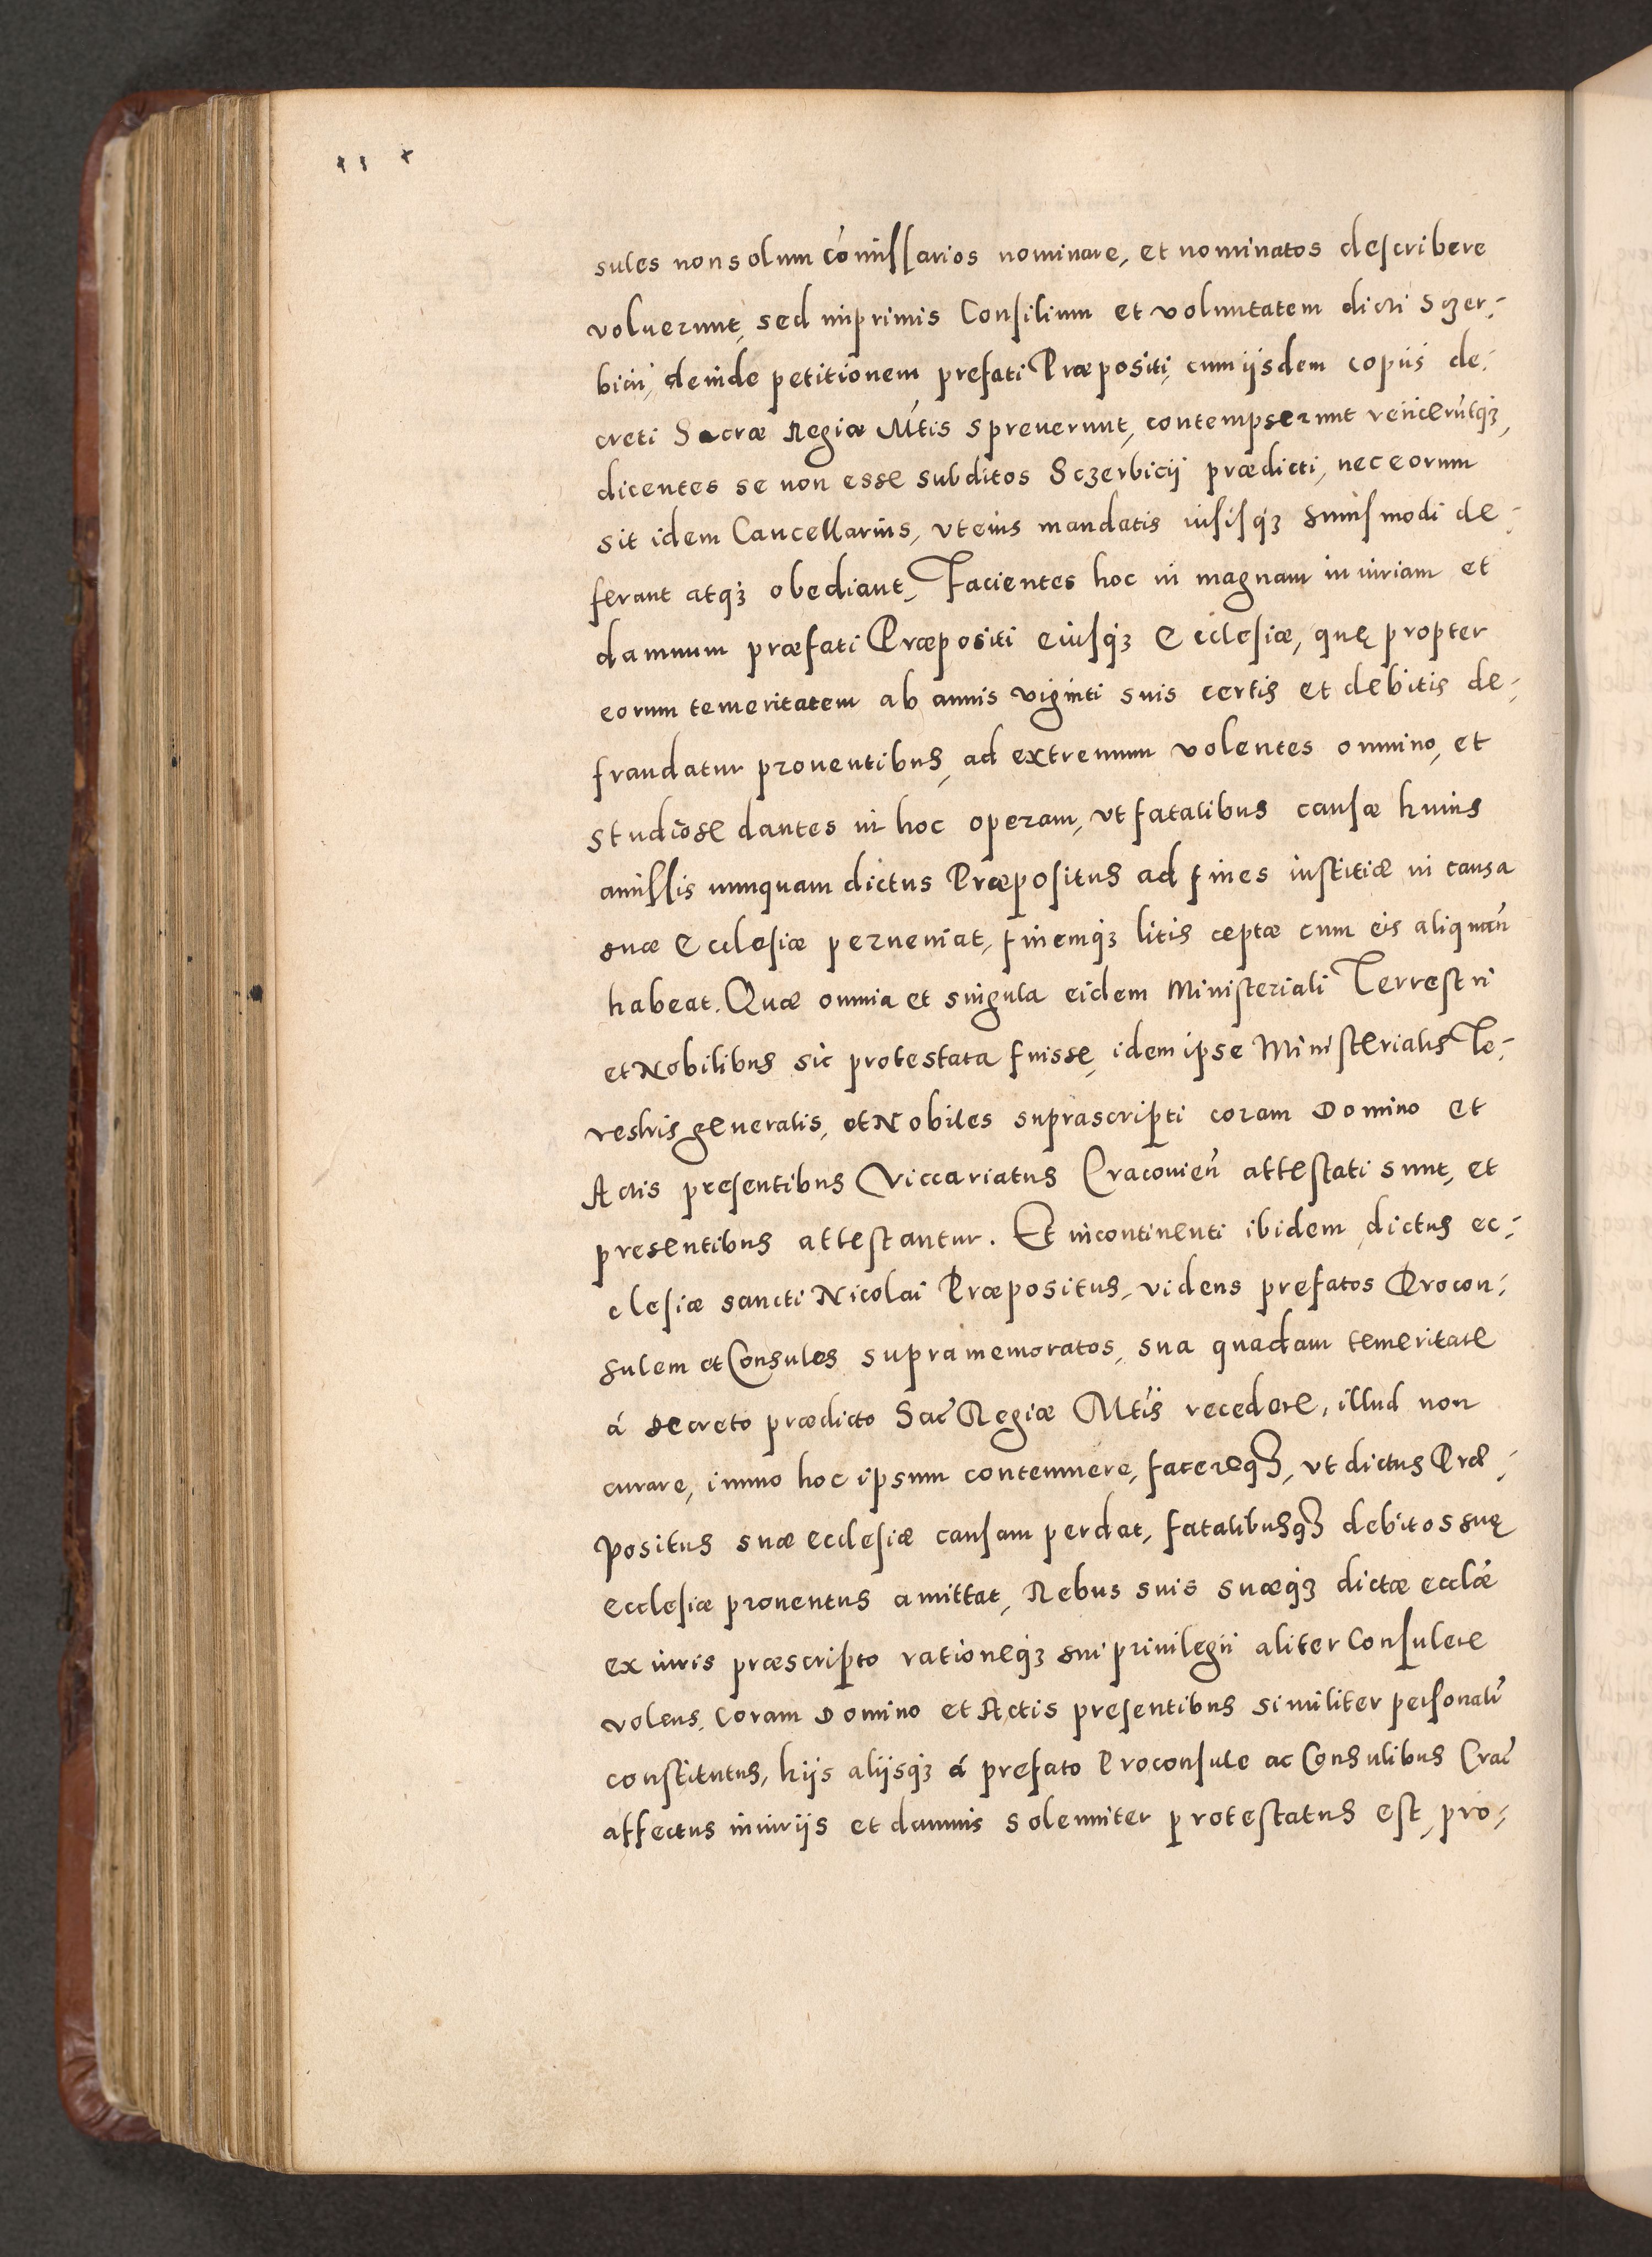 sules non solum cōmissarios nominare, et nominatos describere
voluerunt, sed inprimis Consilium et voluntatem dicti Sczer-
bicii, deinde petitionem prefati Præpositi, cum iisdem copiis de-
creti Sacræ Regiæ M̃tis spreuerunt, contempserunt reiicerũtq̃ȝ,
dicentes se non esse subditos Sczerbicij prædicti, nec eorum
sit idem Cancellarius, vt eius mandatis iussisq̃ȝ huiusmodi de-
ferant atq̃ȝ obediant, Facientes hoc in magnam iniuriam et
damnum præfati Præpositi eiusq̃ȝ Ecclesiæ, quę propter
eorum temeritatem ab annis viginti suis certis et debitis de-
fraudatur prouentibus, ad extremum volentes omnino, et
studiose dantes in hoc operam, vt fatalibus causæ huius
amissis nunquam dictus Præpositus ad fines iustitiæ in causa
suæ Ecclesiæ perueniat, finemq̃ȝ litis ceptæ cum eis aliquañ
habeat. Quæ omnia et singula eidem Ministeriali Terrestri
et Nobilibus sic protestata fuisse, idem ipse Ministerialis Te-
restris generalis, et Nobiles suprascripti coram Domino et
Actis presentibus Viccariatus Cracovień attestati sunt, et
presentibus attestantur. Et incontinenti ibidem dictus ec-
clesiæ sancti Nicolai Præpositus, videns prefatos Procon-
sulem et Consules supra memoratos, sua quadam temeritate
á decreto prædicto Sac̃ Regiæ M̃tis recedere, illud non
curare, immo hoc ipsum contemnere, facereqȝ, vt dictus Præ-
positus suæ ecclesiæ causam perdat, fatalibusqȝ debitos suę
ecclesiæ prouentus amittat, Rebus suis suæq̃ȝ dictæ eccl̃æ
ex iuris præscripto rationeq̃ȝ sui priuilegii aliter Consulere
volens, Coram Domino et Actis presentibus similiter personalr̃
constitutus, hijs alijsq̃ȝ á prefato Proconsule ac Consulibus Crac̃
affectus iniurijs et damnis solenniter protestatus est, pro-